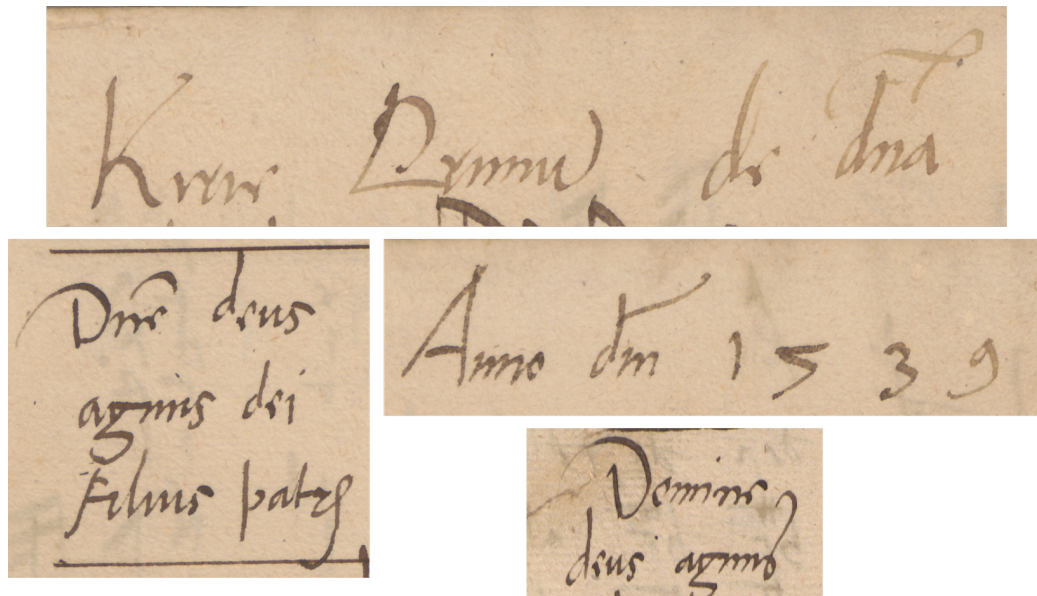 Kyrie Prymu de dna
Dne deus
agnus dei
Filius patris
Anno dm 1539
Domine
deus agnus